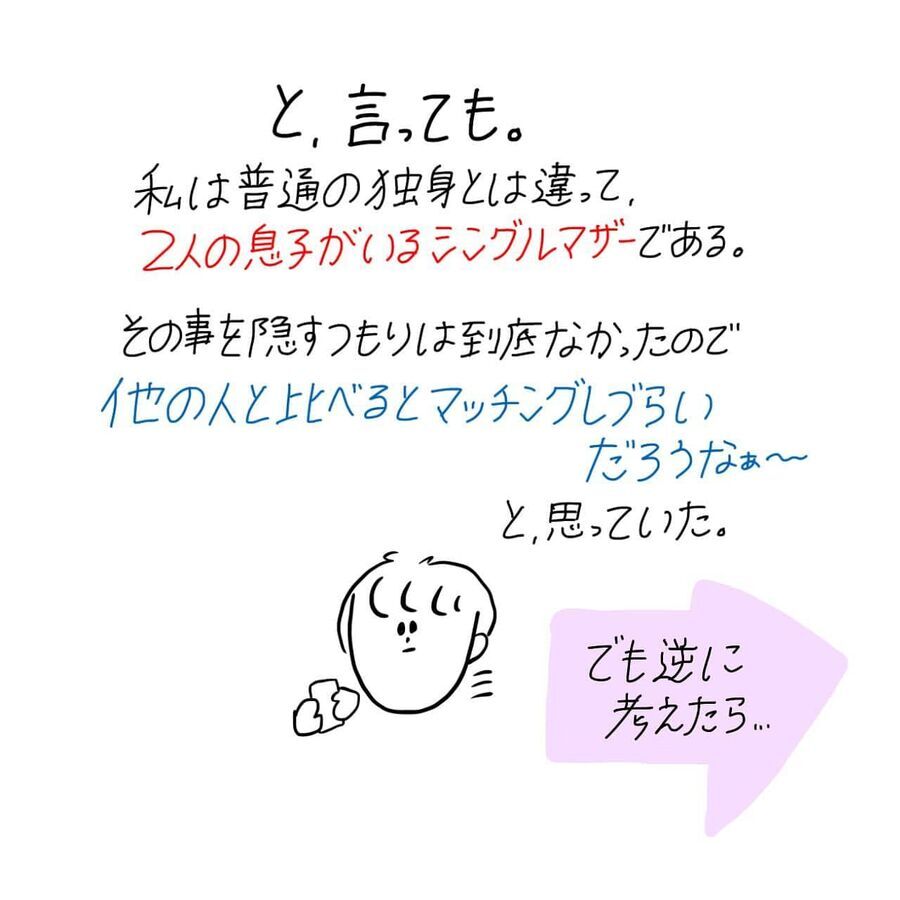 と、言っても。
私は普通の独身とは違って、
2人の息子がいるシングルマザーである。
その事を隠すつもりは到底なかったので
他の人と比べるとマッチングしづらい
だろうなぁ〜
と、思っていた。
でも逆に
考えたら...